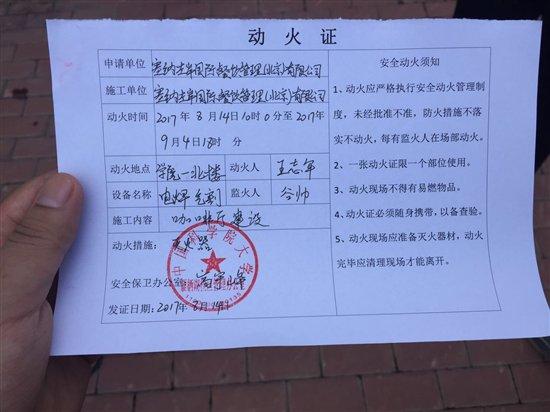 动火证
申请单位 塞纳左岸国际餐饮管理(北京)有限公司
施工单位 塞纳左岸国际餐饮管理(北京)有限公司
动火时间 2017年8月14日10时0分至2017年
9月4日18时 分
动火地点 学院一北楼 动火人 王志军
设备名称 电焊 监火人 谷帅
施工内容 咖啡厅建设
动火措施: 灭火器
安全保卫办公室:
发证日期: 2017年8月14日
中国科学院大学
安全动火须知
1、动火应严格执行安全动火管理制
度，未经批准不准，防火措施不落
实不动火，每有监火人在场部动火。
2、一张动火证限一个部位使用。
3、动火现场不得有易燃物品。
4、动火证必须随身携带，以备查验。
5、动火现场应准备灭火器材，动火
完毕应清理现场才能离开。